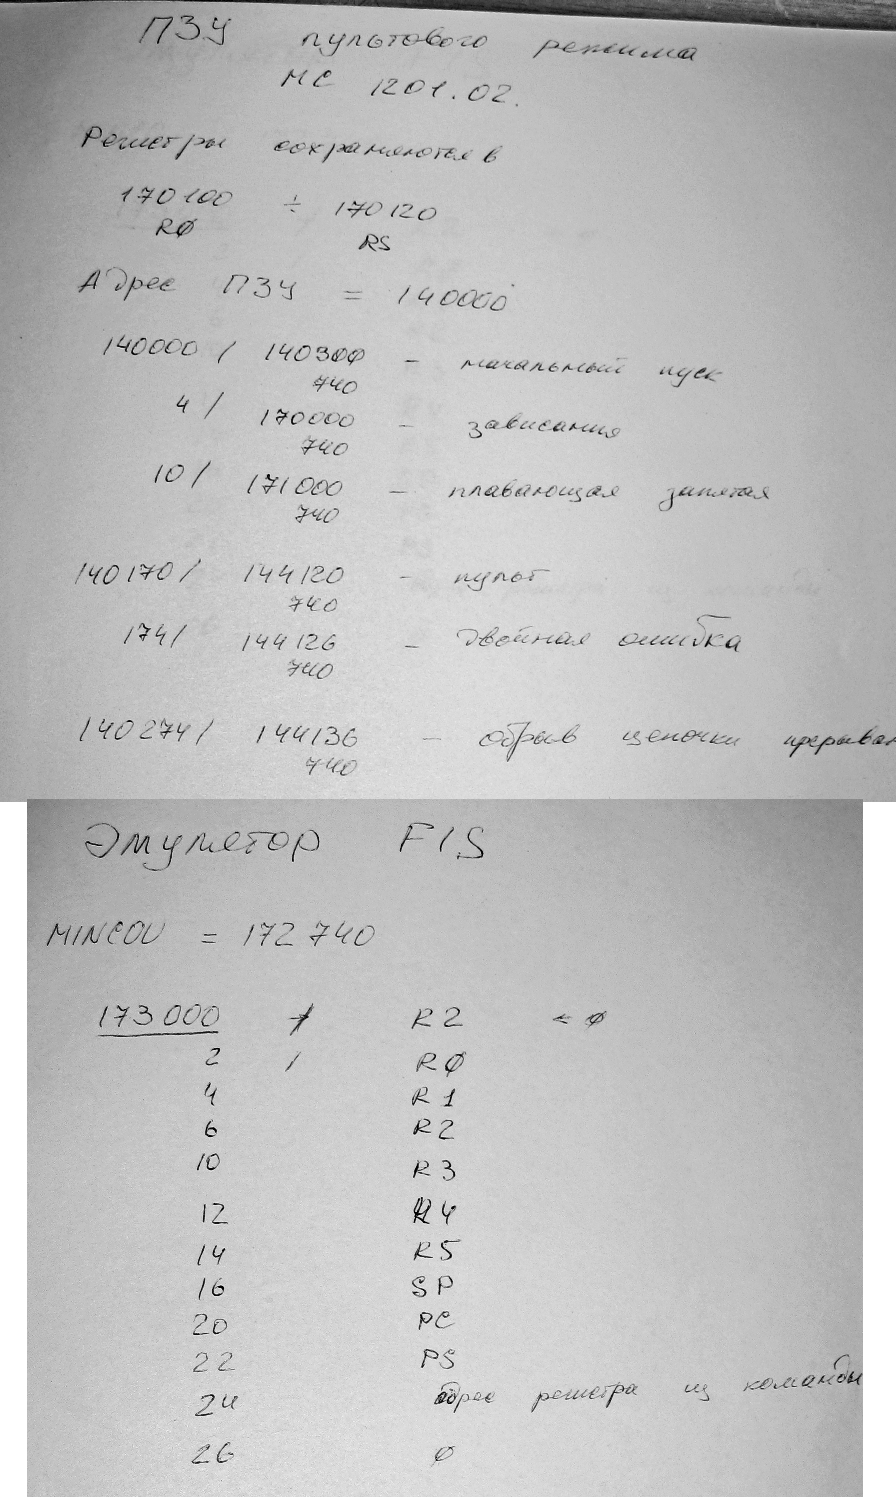 ПЗУ пультового режима
МС 1201.02.
Регистры сохраняются в
170100 ÷ 170120
RØ RS
Адрес ПЗУ = 140000
140000 / 140300 - начальный пуск
740
4 / 170000 - зависания
740
10 / 171000 - плавающая запятая
740
140170 / 144120 - пульт
740
174 / 144126 - двойная ошибка
740
140274 / 144136 - обрыв цепочки прерыван
740
Эмулятор FIS
MINCOU = 172740
173000 / R2 = Ø
2 / RØ
4 R1
6 R2
10 R3
12 R4
14 R5
16 SP
20 PC
22 PS
24 адрес регистра из команды
26 Ø